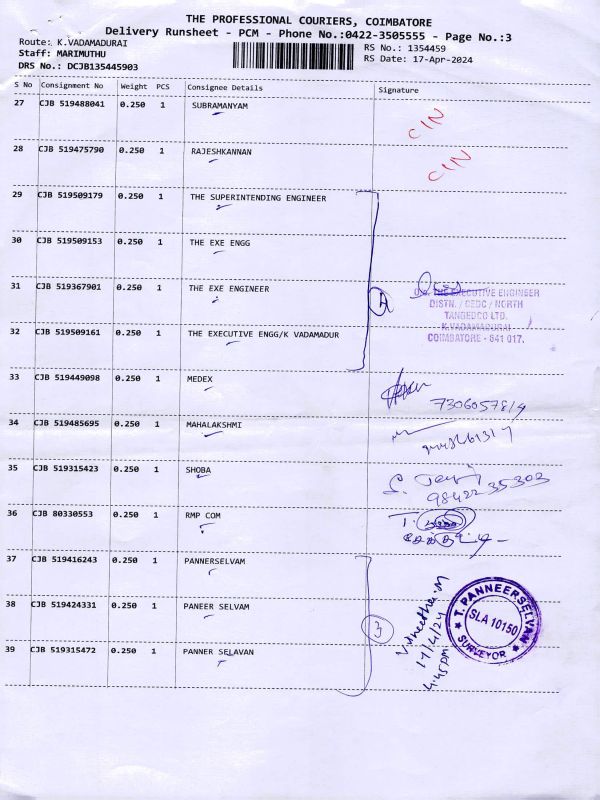 THE PROFESSIONAL COURIERS, COIMBATORE
Delivery Runsheet - PCM - Phone No.:0422-3505555 - Page No.:3
Route: K.VADAMADURAI
Staff: MARIMUTHU
DRS No.: DCJB135445903
RS No.: 1354459
RS Date: 17-Apr-2024
S No Consignment No Weight PCS Consignee Details Signature
27 CJB 519488041 0.250 1 SUBRAMANYAM CIN
28 CJB 519475790 0.250 1 RAJESHKANNAN CIN
29 CJB 519509179 0.250 1 THE SUPERINTENDING ENGINEER
30 CJB 519509153 0.250 1 THE EXE ENGG
31 CJB 519367901 0.250 1 THE EXE ENGINEER
4
THE EXECUTIVE ENGINEER
DISTN. / CEDC / NORTH
TANGEDCO LTD.
K.VADAMADURAI
COIMBATORE - 641 017.
32 CJB 519509161 0.250 1 THE EXECUTIVE ENGG/K VADAMADUR
33 CJB 519449098 0.250 1 MEDEX
34 CJB 519485695 0.250 1 MAHALAKSHMI
35 CJB 519315423 0.250 1 SHOBA
98422 35303
36 CJB 80330553 0.250 1 RMP COM
37 CJB 519416243 0.250 1 PANNERSELVAM
38 CJB 519424331 0.250 1 PANEER SELVAM
3
17/4/24
4.45pm
T. PANNEERSELVAM
SLA 10150
SURVEYOR
39 CJB 519315472 0.250 1 PANNER SELAVAN